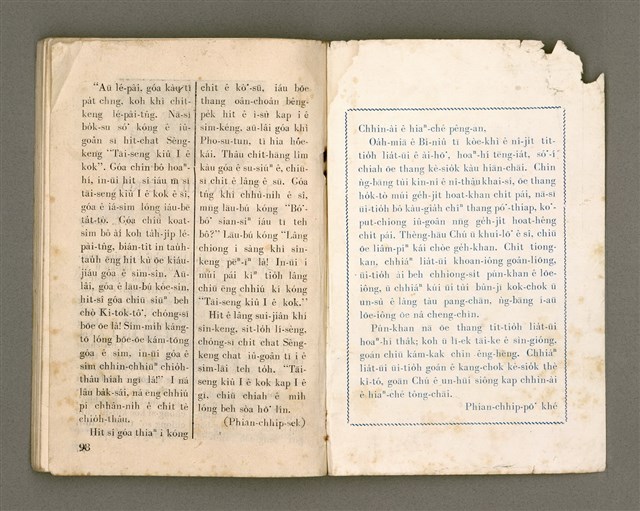 “Aū lé-pài, góa kàu tī
pa̍t chng, koh khì chi̍t-
keng lé-pài-tn̂g. Nā-sī
bo̍k-su só͘ kóng ê iû-
goân sī hit-chat Sèng-
keng “Tāi-seng kiû I ê
kok”. Góa chin bô hoaⁿ-
hí, in-ūi hit sî iáu m̄ sī
tāi-seng kiû I ê kok ê sî,
góa ê iâ-sim lóng iáu-bē
ta̍t-tò. Góa chiū koat-
sim bô ài koh ta̍h-ji̍p lé-
pài-tn̂g, biān-tit in tauh-
tauh ēng hit kù ōe kiáu-
jiáu góa ê sim-sîn. Aū-
lâi, góa ê lāu-bú kòe-sin,
hit-sî góa chiū siūⁿ beh
chò Ki-tok-tô͘, chóng-sī
bōe ōe lā! Sím-mih kàng-
tō lóng bōe-ōe kám-tōng
góa ê sim, in-ūi góa ê
sim chhin-chhiūⁿ chio̍h-
thâu hiah ngī lā!” I nā
lâu ba̍k-sái, nā eng chhiú
pí chhân-nih ê chit tè
chio̍h-thâu.
Hit sî góa thiaⁿ i kóng
96
chit ê kò͘-sū, iáu bōe
thang oân-choân bêng-
pe̍k hit ê ì-sù kap i ê
sim-kéng, aū-lâi góa khì
Pho-su-tun, tī hia hōe-
kái. Thâu chi̍t-hāng lîm
kàu góa ê su-siūⁿ ê, chiū-
sī chit ê lâng ê sū. Góa
tńg khì chhù-nih ê sî,
mn̄g lāu-bú kóng “Bó͘-
bó͘ sian-siⁿ iáu tī teh
bô?” Lāu-bú kóng “Lâng
chiong i sàng khì sîn-
keng pēⁿ-īⁿ lā! In-ūi i
múi pái kìⁿ tio̍h lâng
chiū ēng chhiú kí kóng
“Tāi-seng kiû I ê kok.”
Hit ê lâng sui-jiân khí
sîn-keng, sit-lo̍h lí-sèng,
chóng-sī chit chat Sèng-
keng chat iû-goân tī i ê
sim-lāi teh tôh. “Tāi-
seng kiû I ê kok kap I ê
gī, chiū chiah ê mih
lóng beh sòa hō͘ lín.
(Phian-chhip-sek)
Chhin-ài ê hiaⁿ-chē pêng-an,
Oa̍h-miā ê Bí-niû tī kòe-khì ê nî-ji̍t tit-
tio̍h lia̍t-ūi ê ài-hō͘, hoaⁿ-hí têng-ia̍t, só͘-í
chiah ōe thang kè-sio̍k kàu hiān-chāi. Chin
ǹg-bāng tùi kin-nî ê nî-thâu khai-sí, ōe thang
ho̍k-tò múi ge̍h-ji̍t hoat-khan chi̍t pái, nā-sī
ūi-tio̍h bô kàu-gia̍h chîⁿ thang pó͘-thiap, ko͘-
put-chiong iû-goân nn̄g ge̍h-ji̍t hoat-hêng
chi̍t pái. Thèng-hāu Chú ū khui-lō͘ ê sî, chiū
ōe liâm-piⁿ kái chòe ge̍h-khan. Chit tiong-
kan, chhiáⁿ lia̍t-ūi khoan-iông goân-liōng,
ūi-tio̍h ài beh chhiong-si̍t pún-khan ê lōe-
iông, ū chhiáⁿ kúi ūi tùi bûn-jī kok-chok ū
un-sù ê lâng tàu pang-chān, ǹg-bāng í-aū
lōe-iông ōe ná cheng-chìn.
Pún-khan nā ōe thang tit-tio̍h lia̍t-ūi
hoaⁿ-hí tha̍k; koh ū lī-ek tāi-ke ê sìn-gióng,
goán chiū kám-kak chin êng-hēng. Chhiáⁿ
lia̍t-ūi ūi-tio̍h goán ê kang-chok kè-sio̍k thè
kî-tó, goān Chú ê un-hūi siông kap chhin-ài
ê hiaⁿ-chē tông-chāi.
Phian-chhip-pō͘ khé